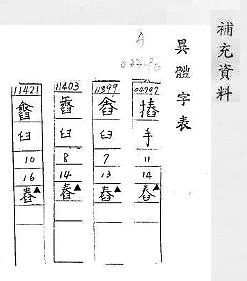 補充資料
異體字表
A
摏
手
11
14
舂▲
11399
臼
7
13
舂▲
11403
臼
8
14
舂▲
11421
臼
10
16
舂▲